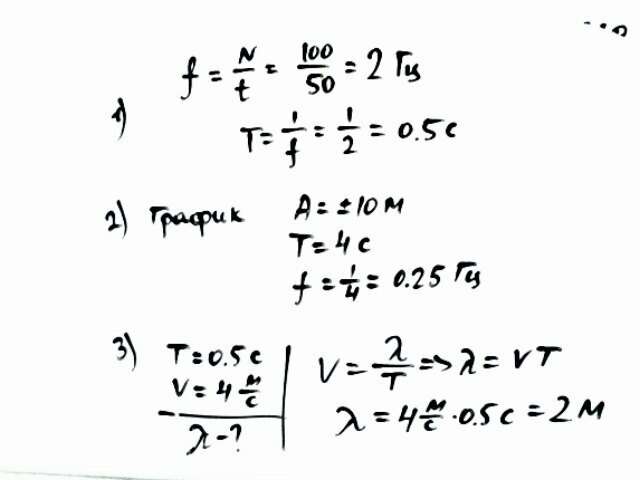 1) f = N/t = 100/50 = 2 Гц
T = 1/f = 1/2 = 0.5 с
2) График A = ±10 м
T = 4 с
f = 1/4 = 0.25 Гц
3) T = 0.5 с
V = 4 м/с
λ - ?
V = λ/T => λ = VT
λ = 4 м/с · 0.5 с = 2 м